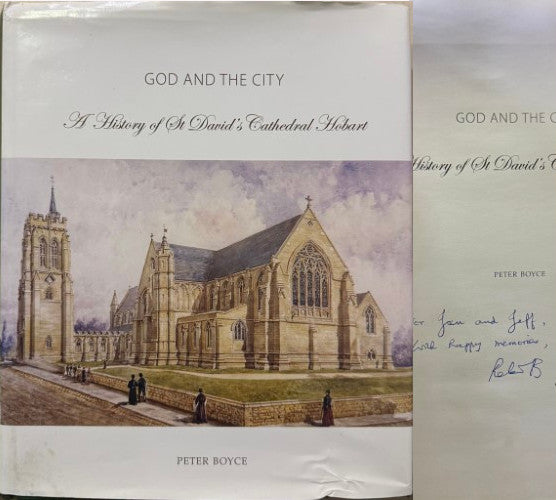 GOD AND THE CITY
A History of St David's Cathedral Hobart
PETER BOYCE
GOD AND THE C
History of St David's C
PETER BOYCE
or Jan and Jeff.
with happy memories,